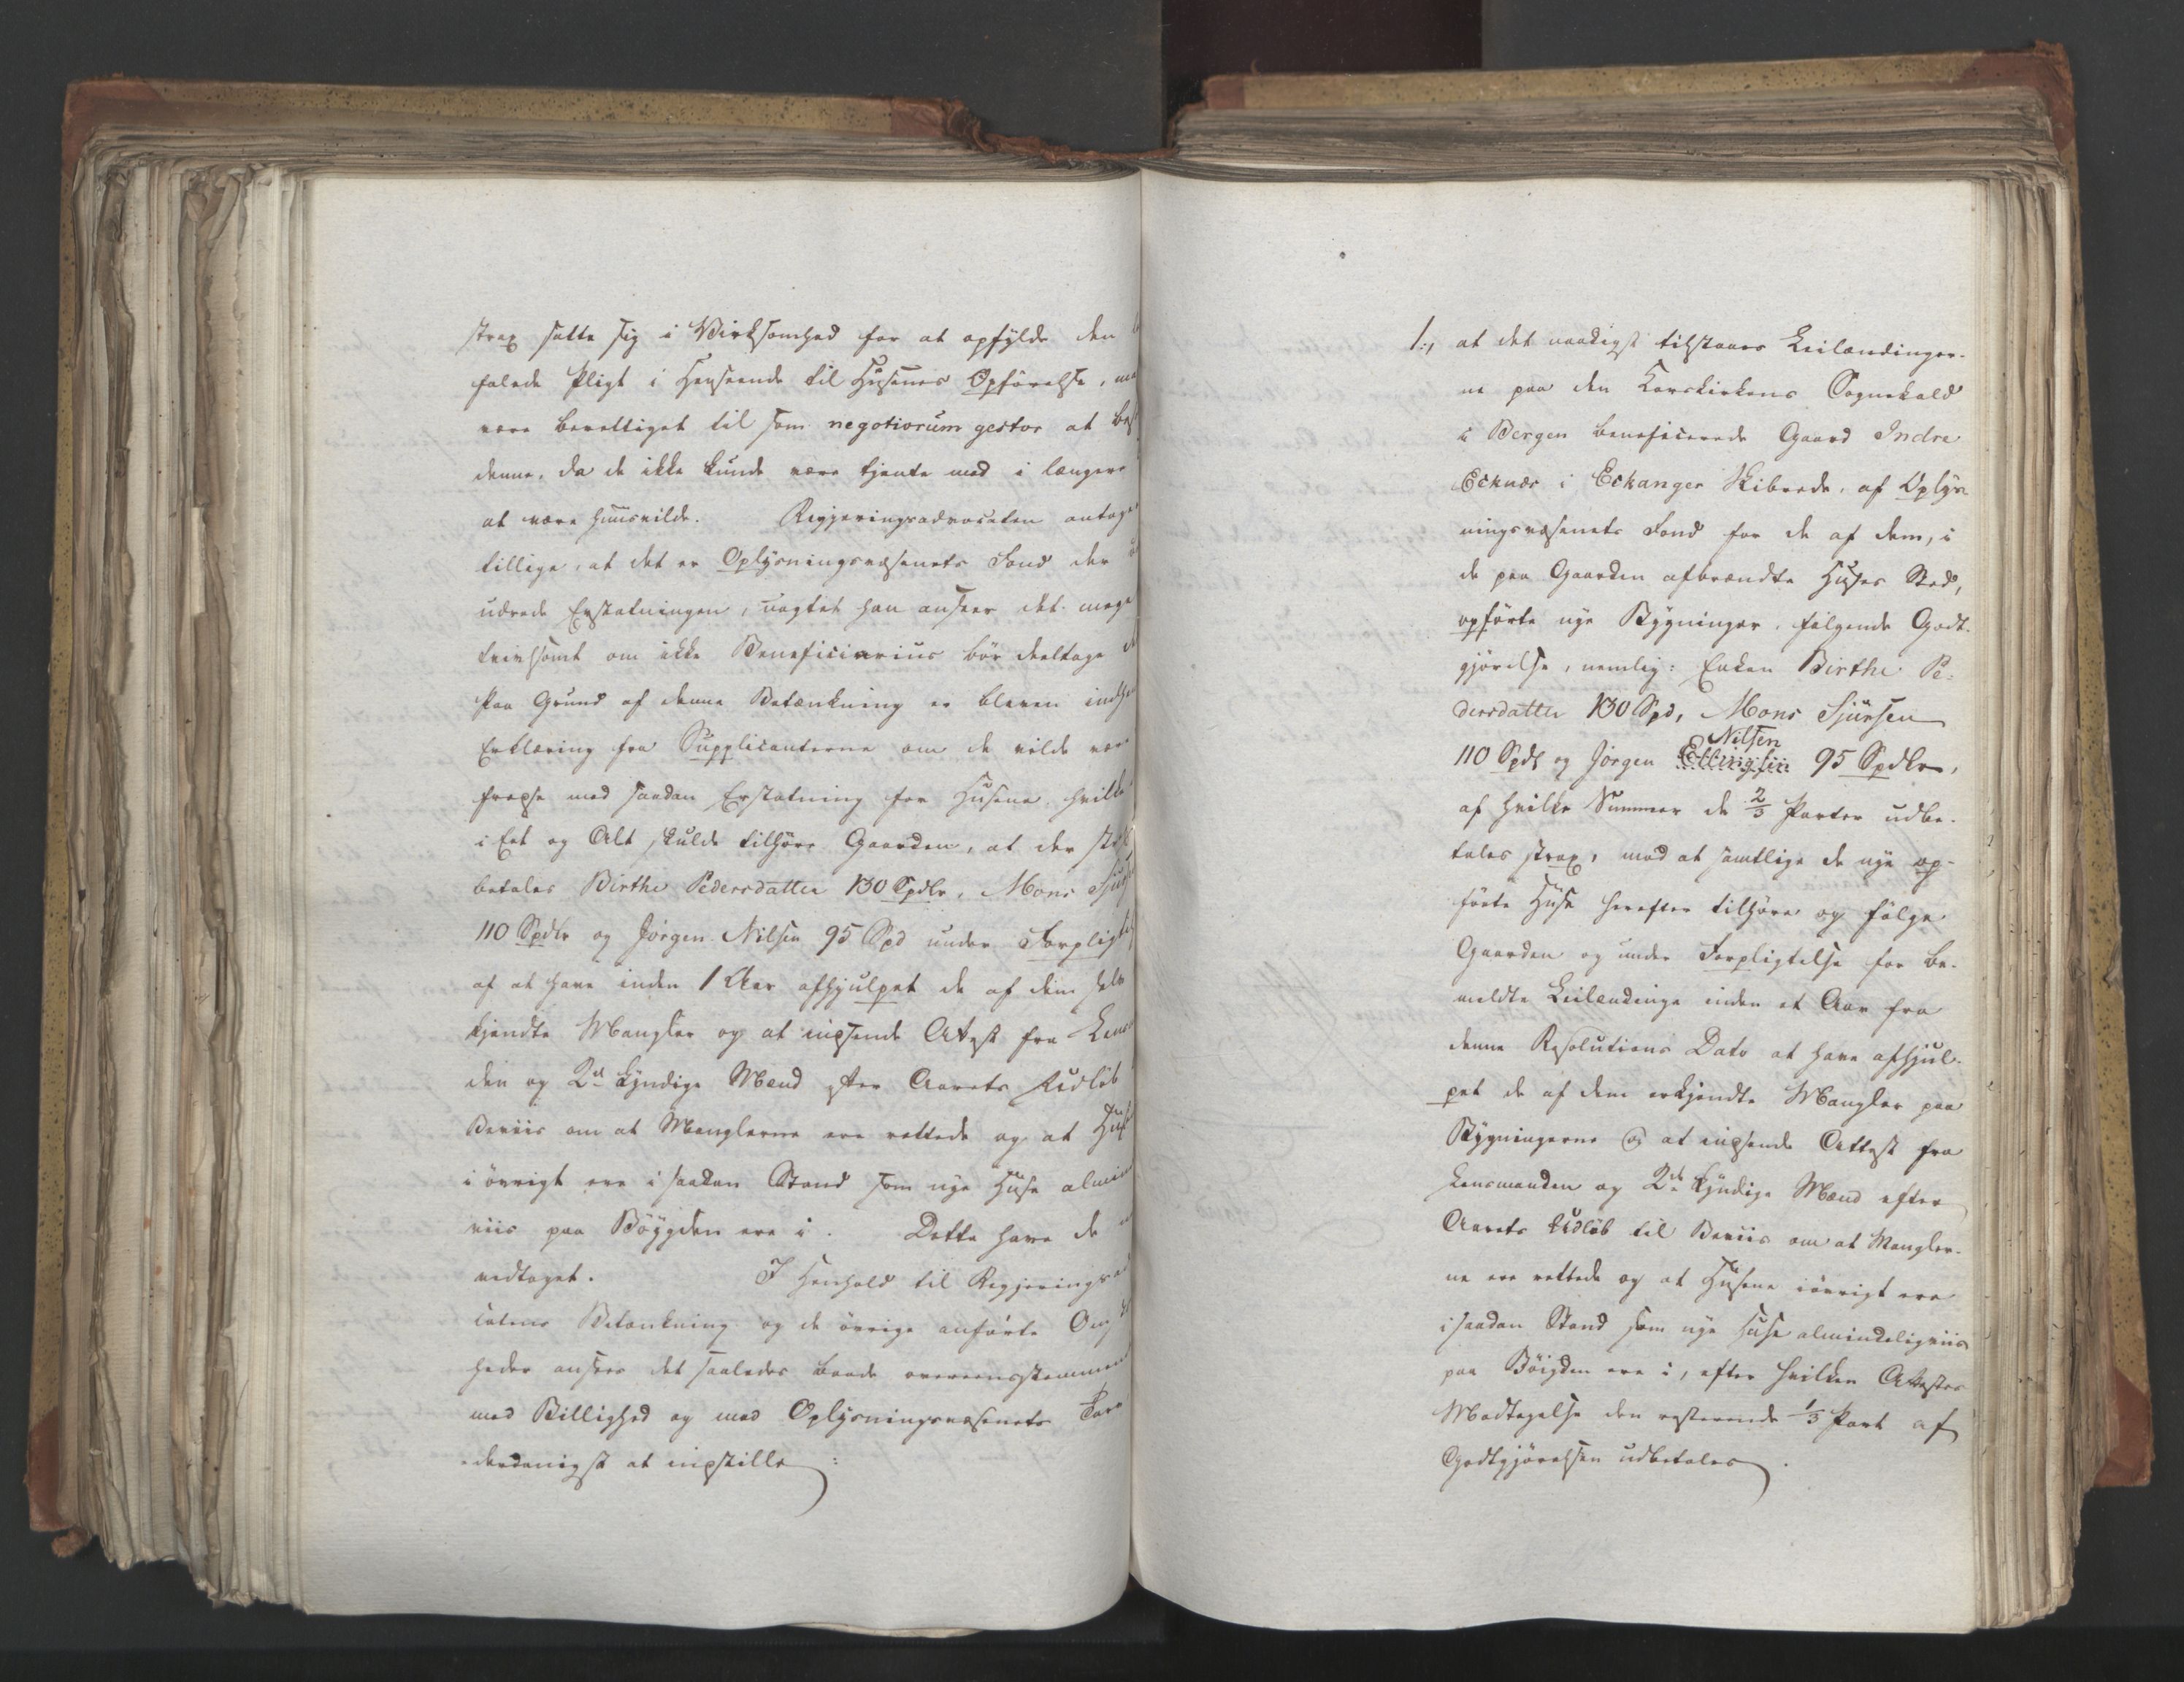 strax sætte sig i Virksomhed for at opfylde den
falede Pligt i Henseende til Husenes Opførelse,
være berettiget til som negotiorum gestor at
denne, da de ikke kunde være tjente med i længere
at være huusvilde. Regjeringsadvocaten antager
tillige, at det er Oplysningsvæsenets Fond der
udrede Erstatningen, uagtet han ansees det meget
tvivlsomt om ikke Beneficiarius bør deeltage
Paa Grund af denne Betænkning er bleven
Erklæring fra Supplicanterne om de vilde være
freste med saadan Erstatning for Husene, hvilke
i Eet og Alt skulde tilhøre Gaarden, at der
betales Birthe Pedersdatter 130 Spdlr, Mons
110 Spdlr og Jørgen Nilsen 95 Spd under
af at have inden 1 Aar afhjulpet de af dem selv
kjendte Mangler og at indsende Attest fra
den og 2de kyndige Mænd efter Aarets Udløb
Beviis om at Manglerne ere rettede og at
i øvrigt ere i saadan Stand som nye Huse
viis paa Bøygden ere i. Dette have de
vedtaget. I Henhold til
catens Betænkning og de øvrige anførte
heder ansees det saaledes baade overeensstemmende
med Billighed og med Oplysningsvæsenets
derdanigst at indstille:
1., at det naadigst tilstaaes Leilændinger-
ne paa den Korskirkens Sognekald
i Bergen beneficerede Gaard Indre
Ecknæs i Eckanger Skibrede, af Oplys-
ningsvæsenets Fond for de af dem, i
de paa Gaarden afbrændte Huses Sted,
opførte nye Bygninger, følgende Godt-
gjørelse, nemlig: Enken Birthe Pe-
dersdatter 130 Spd, Mons Sjursen
Nilsen
110 Spdl og Jørgen Ellingsen 95 Spdlr,
af hvilke Summer de 2/3 Parter udbe-
tales strax, mod at samtlige de nye op-
førte Huse herefter tilhøre og følge
Gaarden og under Forpligtelse for be-
meldte Leilændinge inden et Aar fra
denne Resolutions Dato at have afhjul-
pet de af dem erkjendte Mangler paa
Bygningerne og at indsende Attest fra
Lensmanden og 2de kyndige Mænd efter
Aarets Udløb til Beviis om at Mangler-
ne ere rettede og at Husene iøvrigt ere
i saadan Stand som nye Huse almindeligviis
paa Bøigden ere i, efter hvilken Attestes
Modtagelse den resterende 1/3 Part af
Godtgjørelsen udbetales.